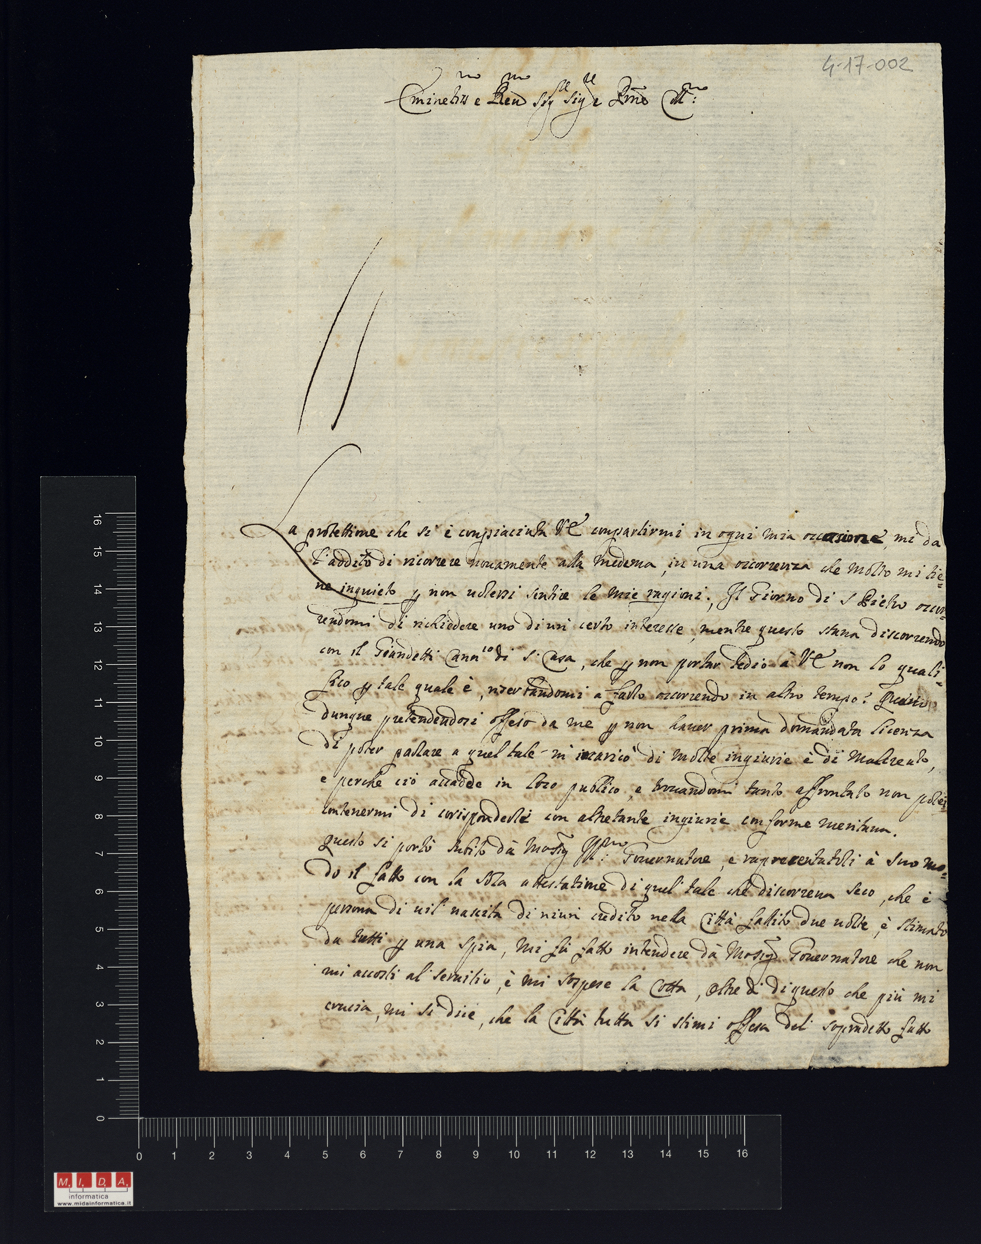 4-17-002
Eminetiss.mo e Reu.mo Sig.re Sig.re e P.rone Col.mo:
La protettione che si è conpiaciuta V.E. conpartirmi in ogni mia occasione, mi da
l'addito di ricorere nouamente alla medema, in una occorrenza che molto mi tie=
ne inquieto p non uolersi sentire le mie ragioni. Il Giorno di S Pietro occor
rendomi di richiedere uno di un certo interesse, mentre questo staua discorrendo
con il Giandetti Cann.co di S. Casa, che p non portar tedio à V.E. non lo quali=
fico p tale quale è, riserbandomi a farlo occorrendo in altro tempo: Quindi
dunque pretendendosi offeso da me p non hauer prima domandata licenza
di poter parlare a quel tale mi incaricò di molte ingiurie è di Malcreato,
e perche ciò accadde in loco publico, e trouandomi tanto affrontato non potei
contenermi di corisponderli con altretante ingiurie conforme meritaua.
Questo si portò subito dà Mons.g Ill.mo Gouernatore, e rapresentatoli à suo mo=
do il fatto con la sola attestatione di quel tale che discorreua seco, che è
persona di uil nascita di niun credito nella Città fallito due uolte, è stimato
da tutti p una spia, mi fù fatto intendere dà Mons.g Gouernatore che non
mi accosti al seruitio, è mi sospese la Cotta, oltre di di questo che più mi
crucia, mi si dice, che la Città tutta si stimi offesa del sopradetto fatto
0 1 2 3 4 5 6 7 8 9 10 11 12 13 14 15 16
0 1 2 3 4 5 6 7 8 9 10 11 12 13 14 15 16
M.I.D.A.
informatica
www.midainformatica.it